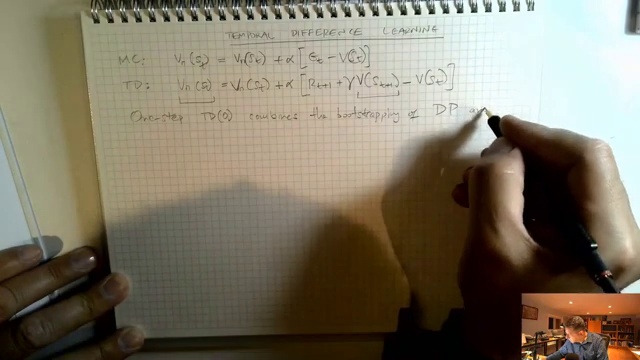 TEMPORAL DIFFERENCE LEARNING
MC: Vπ(St) = Vπ(St) + α [Gt − V(St)]
TD: Vπ(St) = Vπ(St) + α [Rt+1 + γV(St+1) − V(St)]
One-step TD(0) combines the bootstrapping of DP an